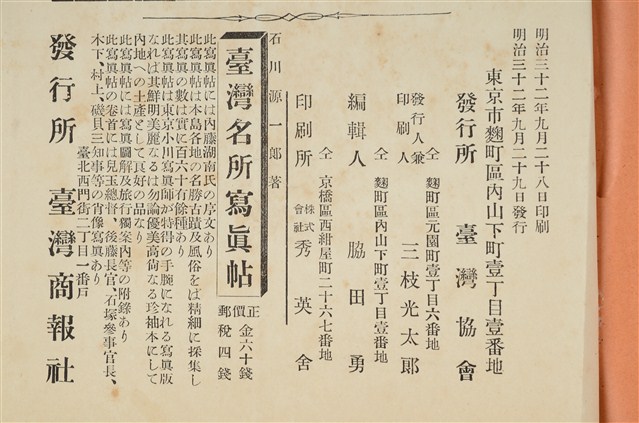 明治三十二年九月二十八日印刷
明治三十二年九月二十九日發行
東京市麴町區內山下町壹丁目壹番地
發行所 臺灣協會
仝 麴町區元園町壹丁目六番地
發行人兼印刷人 三枝光太郎
仝 麴町區內山下町壹丁目壹番地
編輯人 脇田勇
仝 京橋區西紺屋町二十六七番地
印刷所 株式會社 秀英舍
石川源一郎著
臺灣名所寫眞帖
正價金六十錢
郵稅四錢
此寫眞帖には內藤湖南氏の序文あり
此寫眞帖は本島各地の名勝古蹟及風俗をば精細に採集し
其寫眞の數は實に百六十有餘種あり
此寫眞帖は東京小川寫眞師が特得の手腕になれる寫眞版
なれば其鮮明美麗なるは勿論優美高尙なる珍袖本にして
內地への土產として良好の品なり
此寫眞帖には寫眞圖解及旅行獨案內等の附錄あり
此寫眞帖の卷首には兒玉總督、後藤長官、石塚參事官長、
木下、村上、磯貝三知事等の肖像寫眞あり
臺北西門街二丁目一番戶
發行所 臺灣商報社